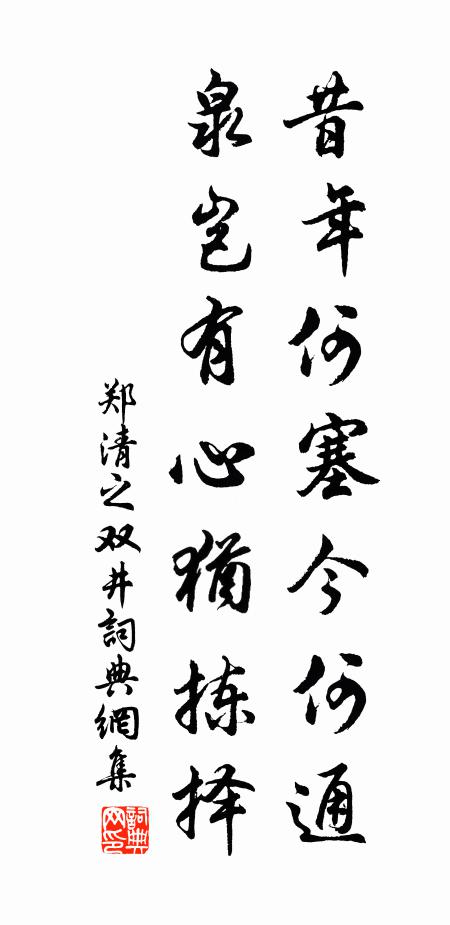 昔年何塞今何通
泉岂有心犹拣择
郑清之双井詞典網集
詞典网印